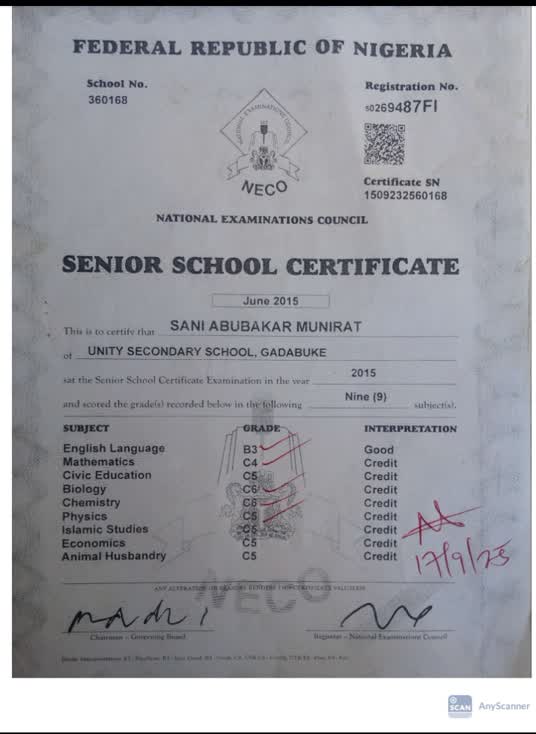 FEDERAL REPUBLIC OF NIGERIA
School No.
360168
Registration No.
50269487FI
NATIONAL EXAMINATIONS COUNCIL
NECO
Certificate SN
1509232560168
NATIONAL EXAMINATIONS COUNCIL
SENIOR SCHOOL CERTIFICATE
June 2015
This is to certify that SANI ABUBAKAR MUNIRAT
of UNITY SECONDARY SCHOOL, GADABUKE
sat the Senior School Certificate Examination in the year 2015
and scored the grade(s) recorded below in the following Nine (9) subject(s).
SUBJECT GRADE INTERPRETATION
English Language B3 Good
Mathematics C4 Credit
Civic Education C5 Credit
Biology C6 Credit
Chemistry C6 Credit
Physics C5 Credit
Islamic Studies Credit
Economics C5 Credit
Animal Husbandry C5 Credit
17/9/25
ANY ALTERATION OR ERASURE RENDERS THIS CERTIFICATE VALUELESS
NECO
Chairman - Governing Board
Registrar - National Examinations Council
SCAN AnyScanner